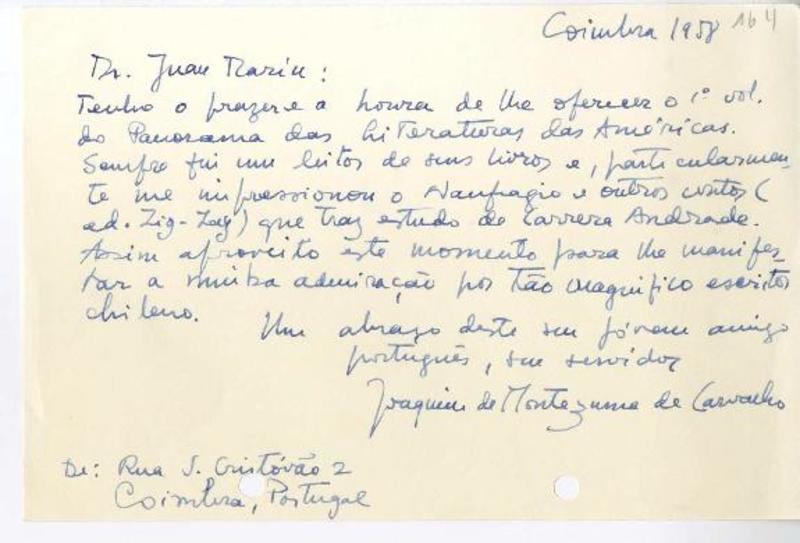 Coimbra 1958 164
Dr. Juan Marin:
Tenho o prazer e a honra de lhe oferecer o 1º vol.
do Panorama das Literaturas das Américas.
Sempre fui um leitor de seus livros e, particularmen-
te me impressionou o Naufragio e outros contos (
ed. Zig-Zag) que traz estudo de Carrera Andrade.
Assim aproveito êste momento para lhe manifes-
tar a minha admiração por tão magnifico escritor
chileno.
Um abraço deste seu jóvem amigo
português, seu servidor
Joaquim de Montezuma de Carvalho
De: Rua S. Cristóvão 2
Coimbra, Portugal